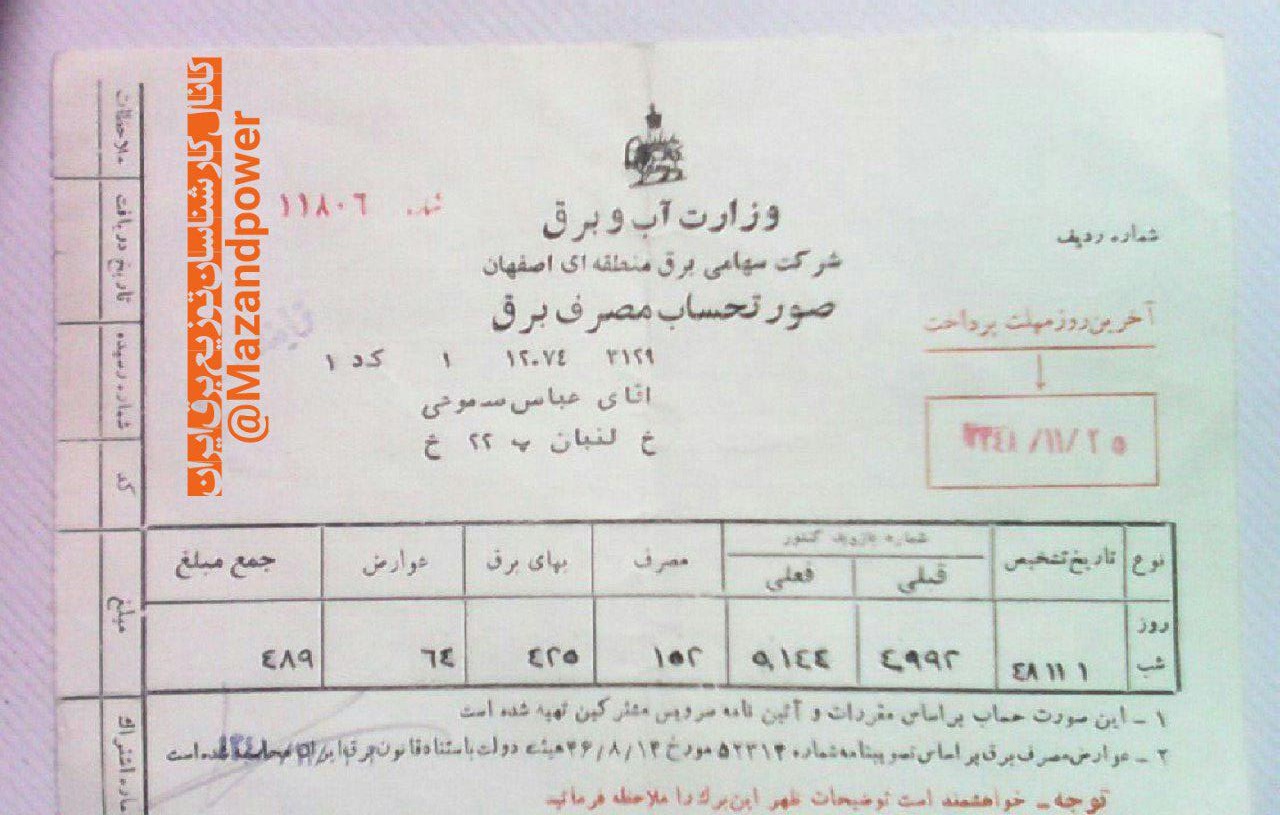 کانال کارشناسان توزیع برق ایران
@Mazandpower
وزارت آب و برق
شرکت سهامی برق منطقه ای اصفهان
صورتحساب مصرف برق
شماره ردیف
شد. ۱۱۸۰۶
آخرین روز مهلت پرداخت
۲۵ /۱۱/ ۱۳۴۸
۳۱۲۹ ۱۲۰۷۴ ۱ کد ۱
اقای عباس
خ لنبان پ ۲۲ خ
نوع تاریخ تشخیص شماره بازدید کنتور مصرف بهای برق عوارض جمع مبلغ
قبلی فعلی
روز
شب ۱ ۱۱ ۴۸ ۴۹۹۲ ۵۱۴۴ ۱۵۲ ۴۲۵ ۶۴ ۴۸۹
۱ - این صورت حساب بر اساس مقررات و آئین نامه سرویس مشترکین تهیه شده است
۲ - عوارض مصرف برق بر اساس تصویبنامه شماره ۵۲۳۱۴ مورخ ۴۶/۸/۱۴ هیئت دولت باستناد قانون برق ایران محاسبه شده است
توجه - خواهشمند است توضیحات ظهر این برگ را ملاحظه فرمائید
ملاحظات
تاریخ دریافت
شماره رسیده
کد
مبلغ
شماره اشتراک